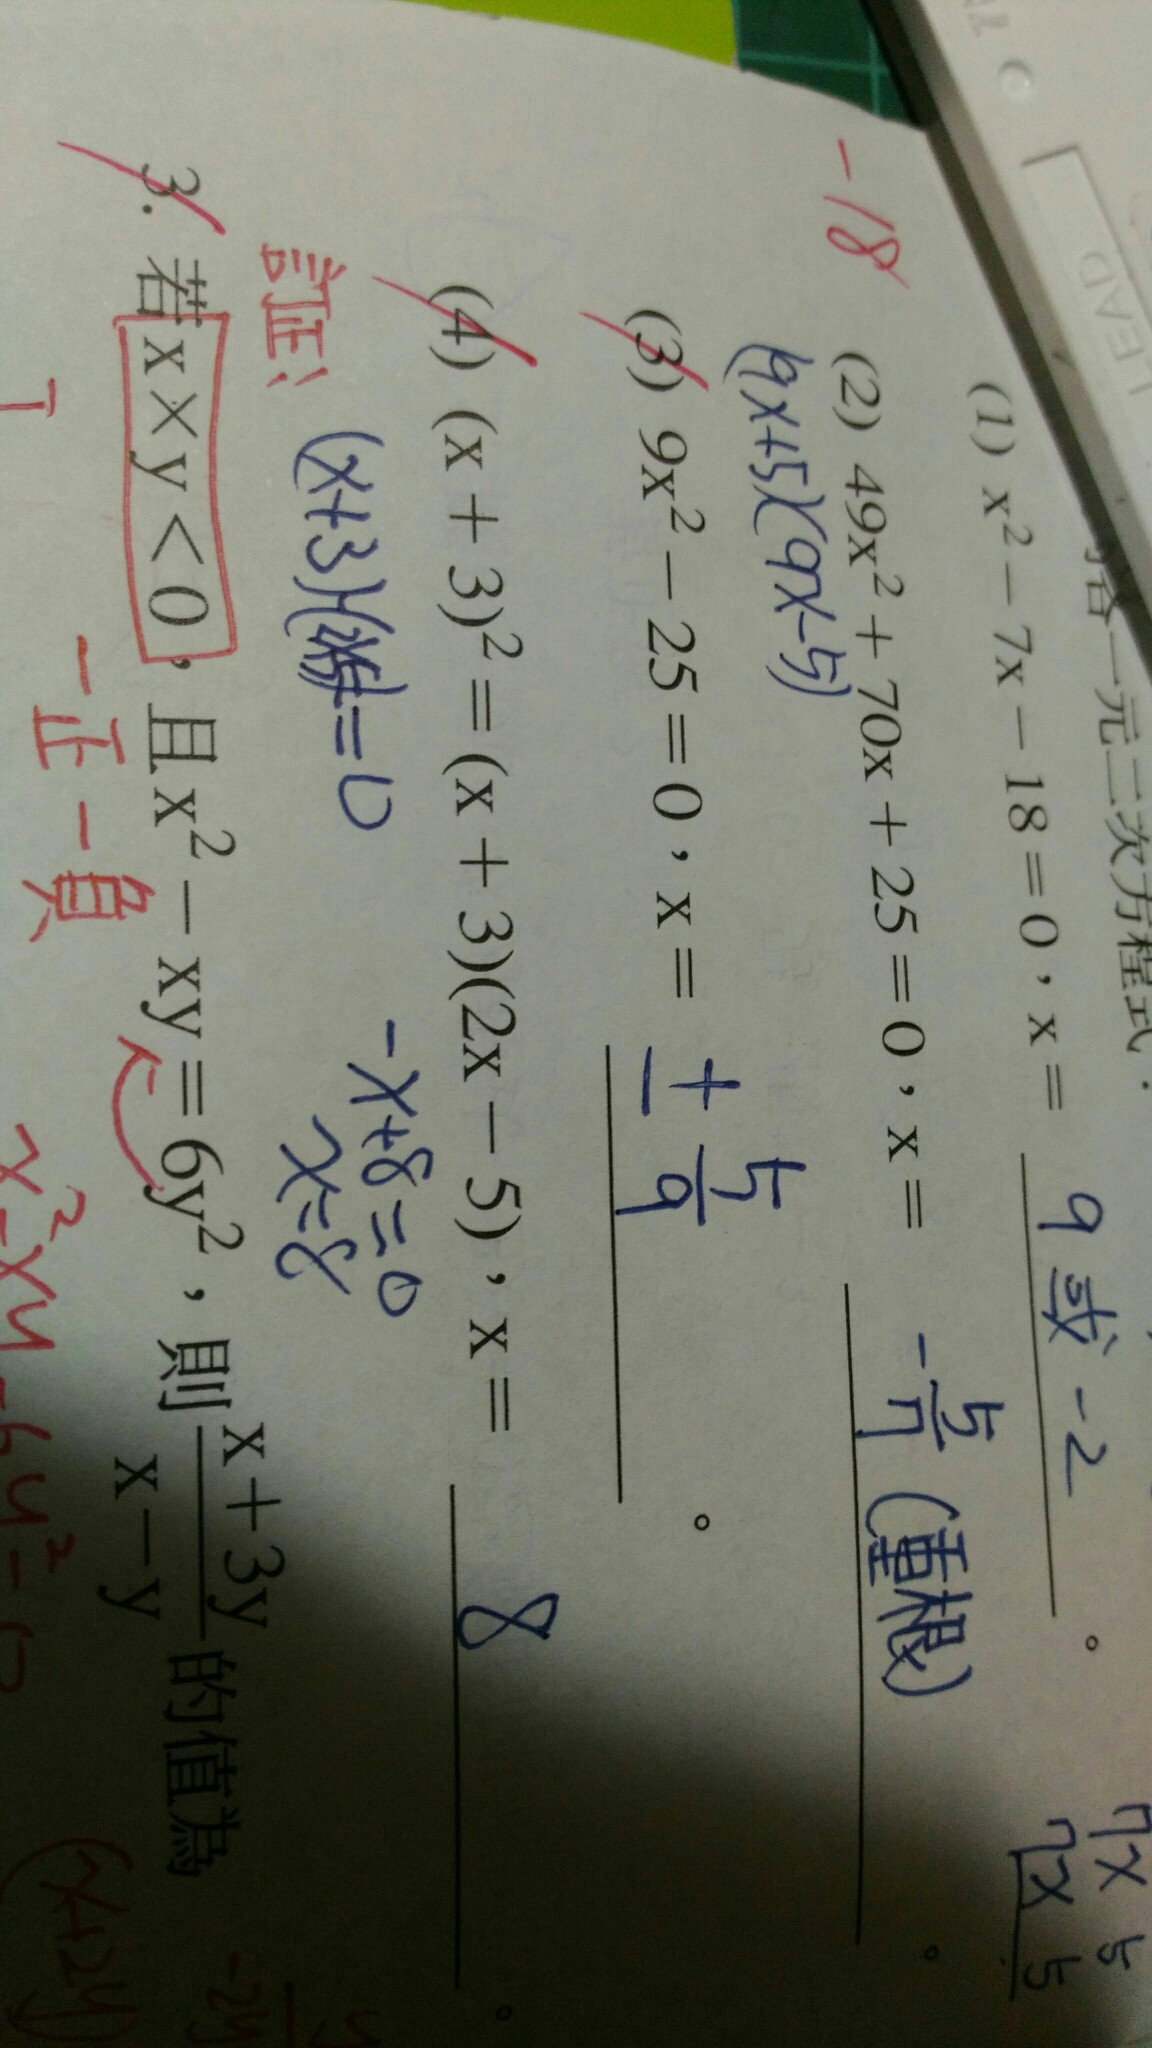 LEAD
一元二次方程式：
(1) x² − 7x − 18 = 0，x = 9 或 -2 。
7x 5
7x 5
-18
(2) 49x² + 70x + 25 = 0，x = -5/7 (重根) 。
(9x+5)(9x-5)
(3) 9x² − 25 = 0，x = ± 5/9 。
(4) (x + 3)² = (x + 3)(2x − 5)，x = 8 。
訂正：
(x+3) =0
-x+8=0
x=8
3. 若x×y < 0，且x² − xy = 6y²，則 (x + 3y)/(x − y) 的值為
一正一負
x²-xy-6y²=0
(x+2y)
-2y